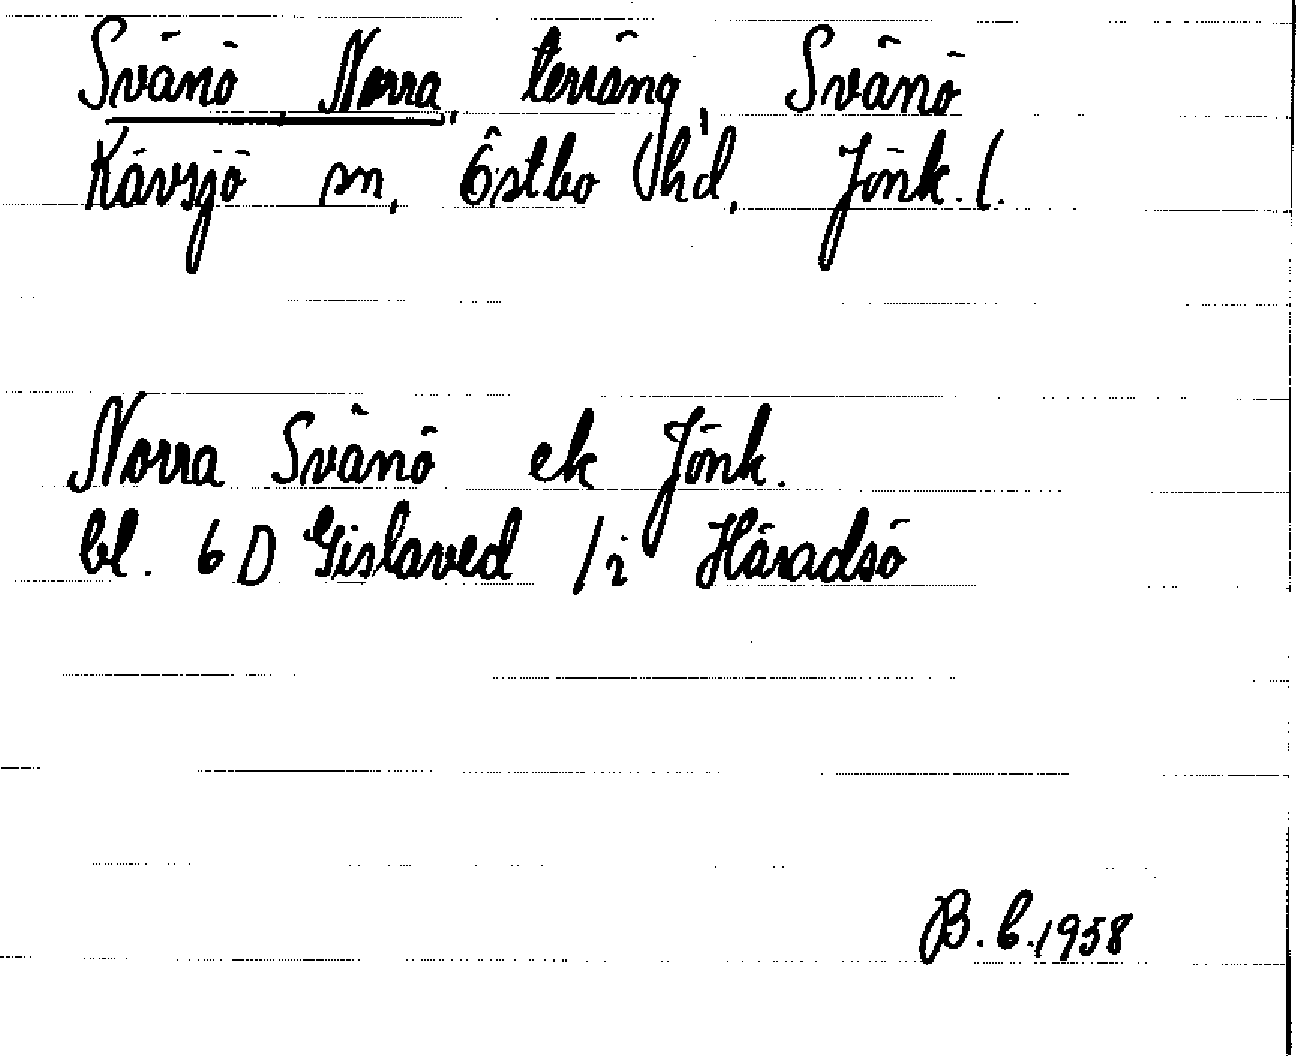 Svänö Norra, terräng, Svänö
Kävsjö sn, Östbo hd, Jönk. l.
Norra Svänö ek Jönk.
bl. 6 D Gislaved /i Häradsö
B. b. 1958